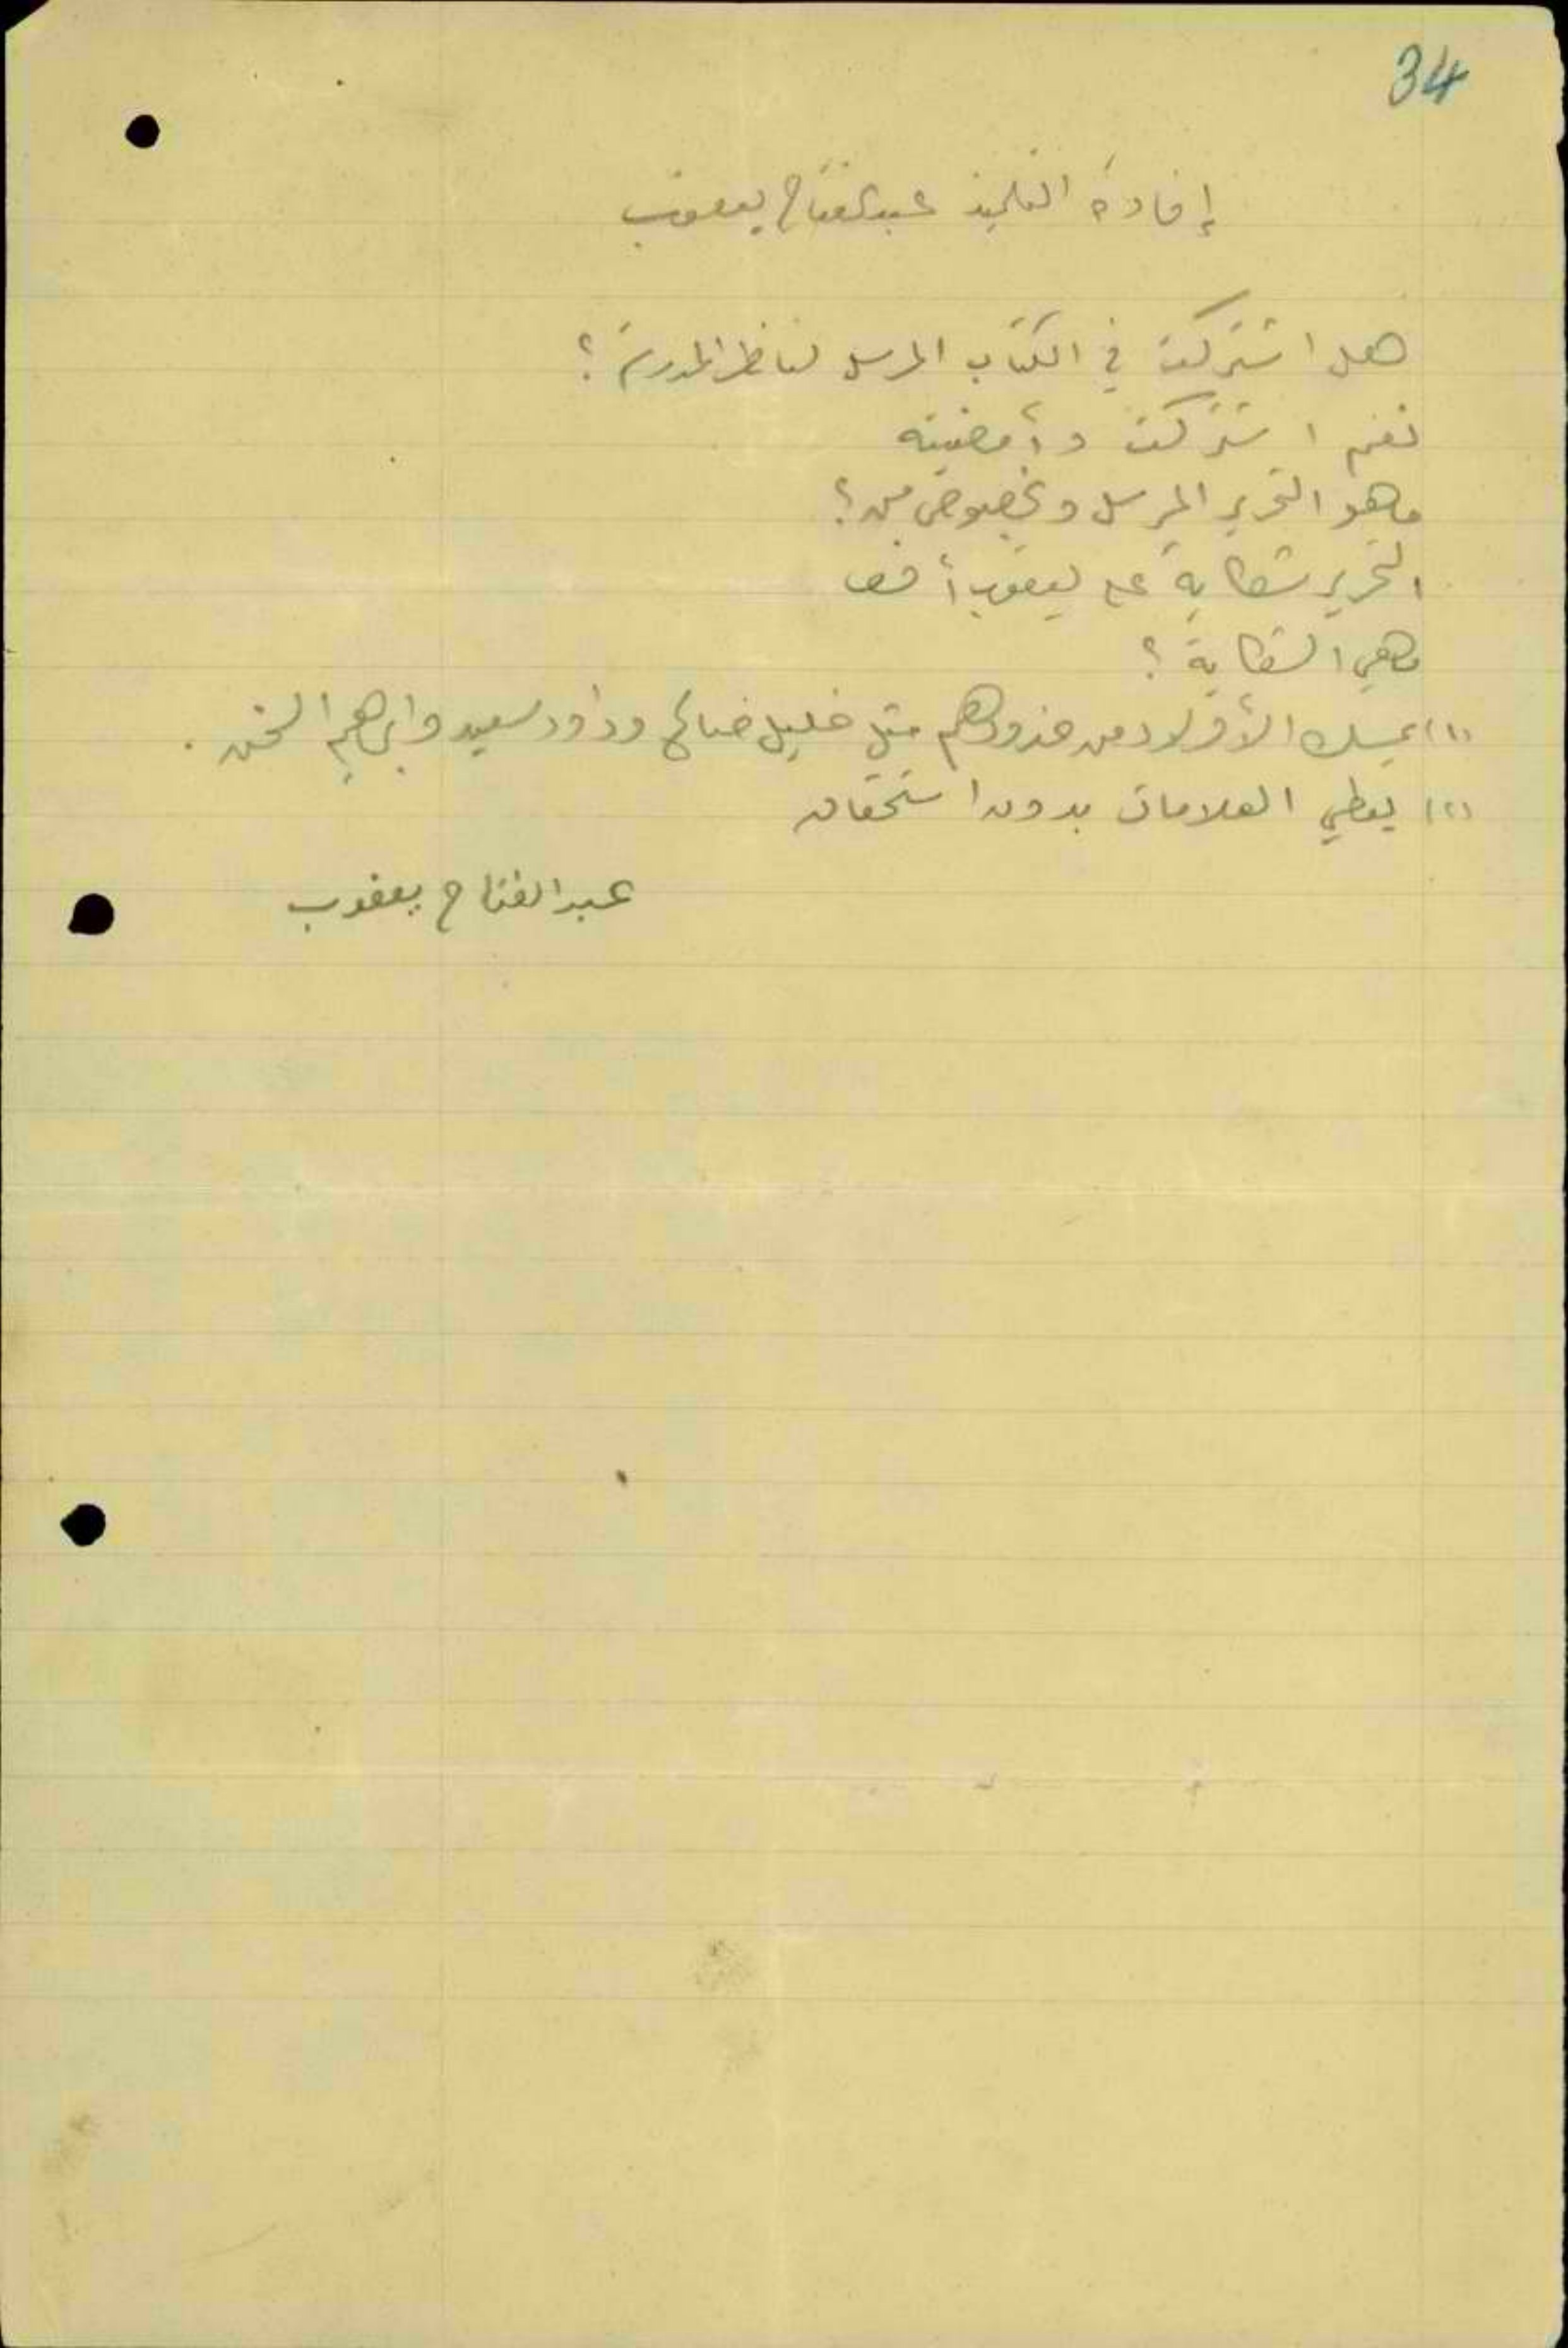 34
إفادة التلميذ عبدالفتاح يعقوب
هل اشتركت في الكتاب المرسل لناظر المدرسة؟
نعم اشتركت وأمضيته
ماهو التحرير المرسل وبخصوص من؟
التحرير شكاية على يعقوب أفندي
ماهي الشكاية؟
(١) يمسك الأولاد من خدودهم مثل خليل صالح وداود سعيد وابرهيم
(٢) يعطي العلامات بدون استحقاق
عبد الفتاح يعقوب